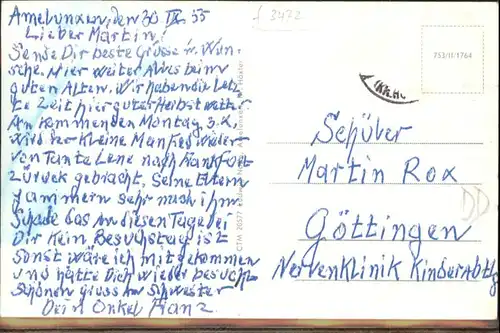 Amelunxen, den 30 IX. 55
Lieber Martin!
Sende Dir beste Grüsse u. Wün-
sche. Hier weiter Alles beim
guten Alten. Wir haben die Letz
te Zeit hier guter Herbst wetter
Am kommenden Montag, 3.X,
wird der Kleine Manfred wieder
von Tante Lene nach Frankfort
zurück gebracht, seine Eltern
jammern sehr nach ihm.
Schade das an diesen Tage bei
Dir Kein Besuchstag ist
sonst wäre ich mitgekommen
und hätte Dich wieder besucht
Schönen gruss an Schwester
Dein Onkel Franz
f 3472
753/11/1764
Schüler
Martin Rox
Göttingen
Nervenklinik Kinderabtlg
DD